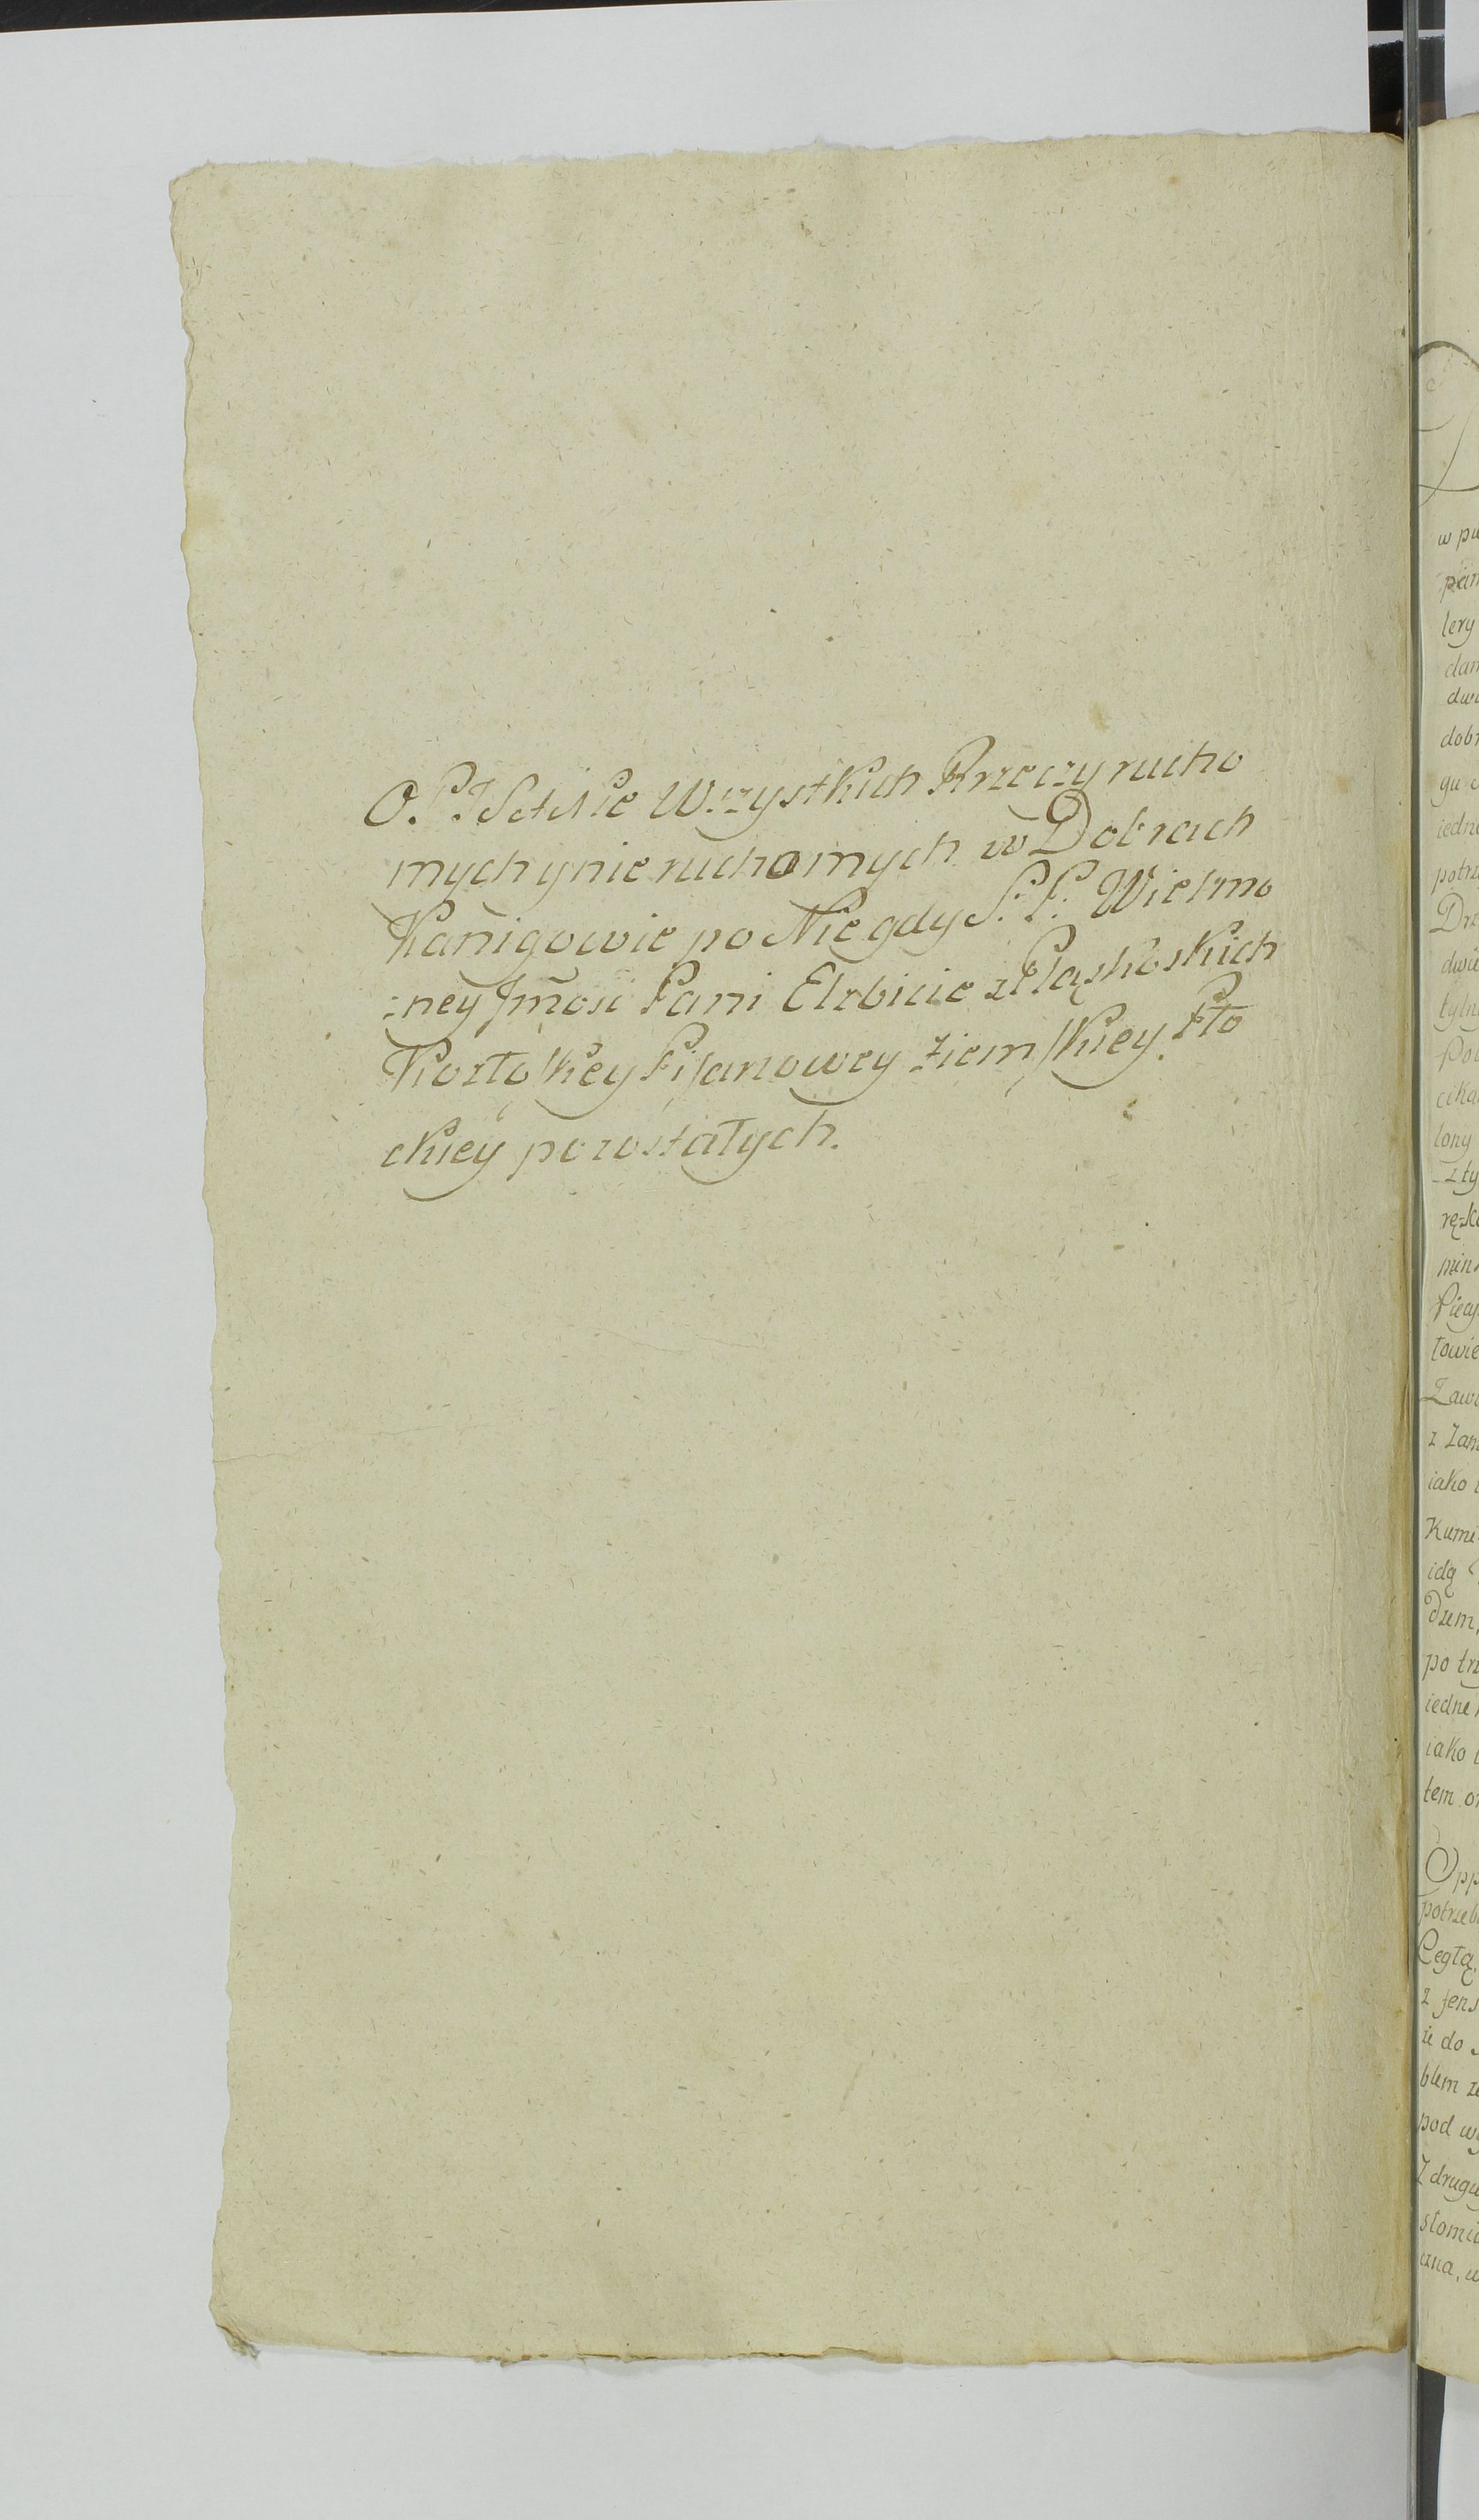 OPISANie Wszystkich Rzeczy rucho
mych y nieruchomych w Dobrach
Kanigowie po Niegdy S: P: Wielmo
:zney Jmości Pani Elzbicie z Pląskoskich
Kozłoskiey Pisarzowey Ziemskiey Pło
ckiey pozostałych.
w pu
lery
dan
dobr
gu
iedne
potrz
dwie
tyln
Pod
cika
lony
z ty
ręzk
Piecy
towie
Zawi
z Zam
iako
idą
Dzem,
po trz
iedne
iako
tem o
Opp
potrzeb
Cegłą,
z fens
ie do
blem z
pod w
Z drugi
słomi
czna, w